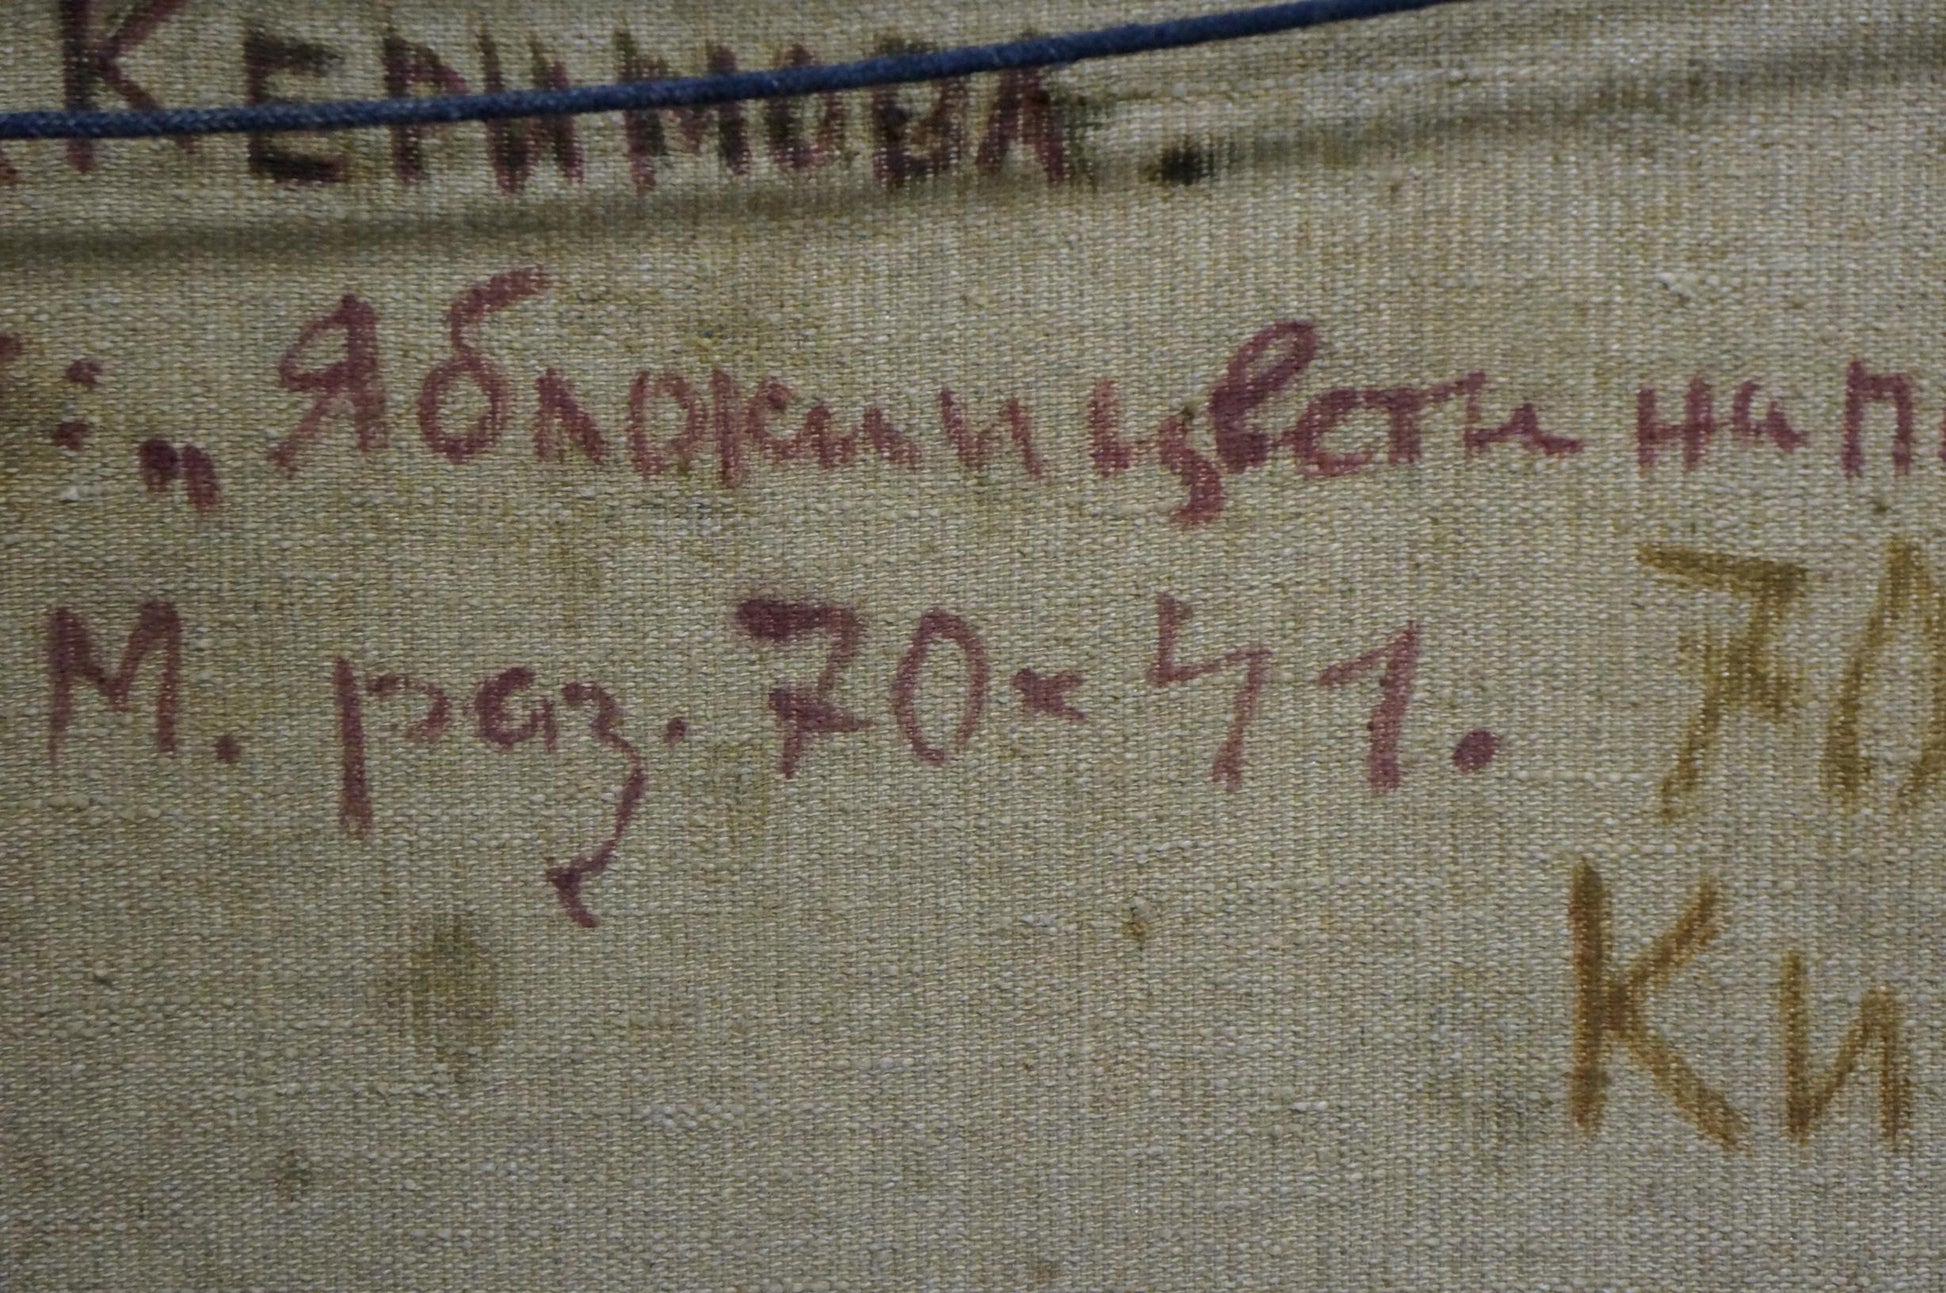 КЕРИМОВА
: „Яблоки и цвети на п
М. раз. 70 × 41.
70
Ки